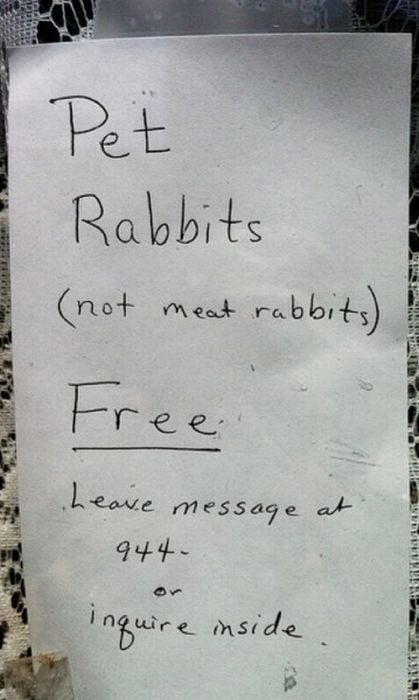 Pet
Rabbits
(not meat rabbits)
Free
Leave message at
944-
or
inquire inside.